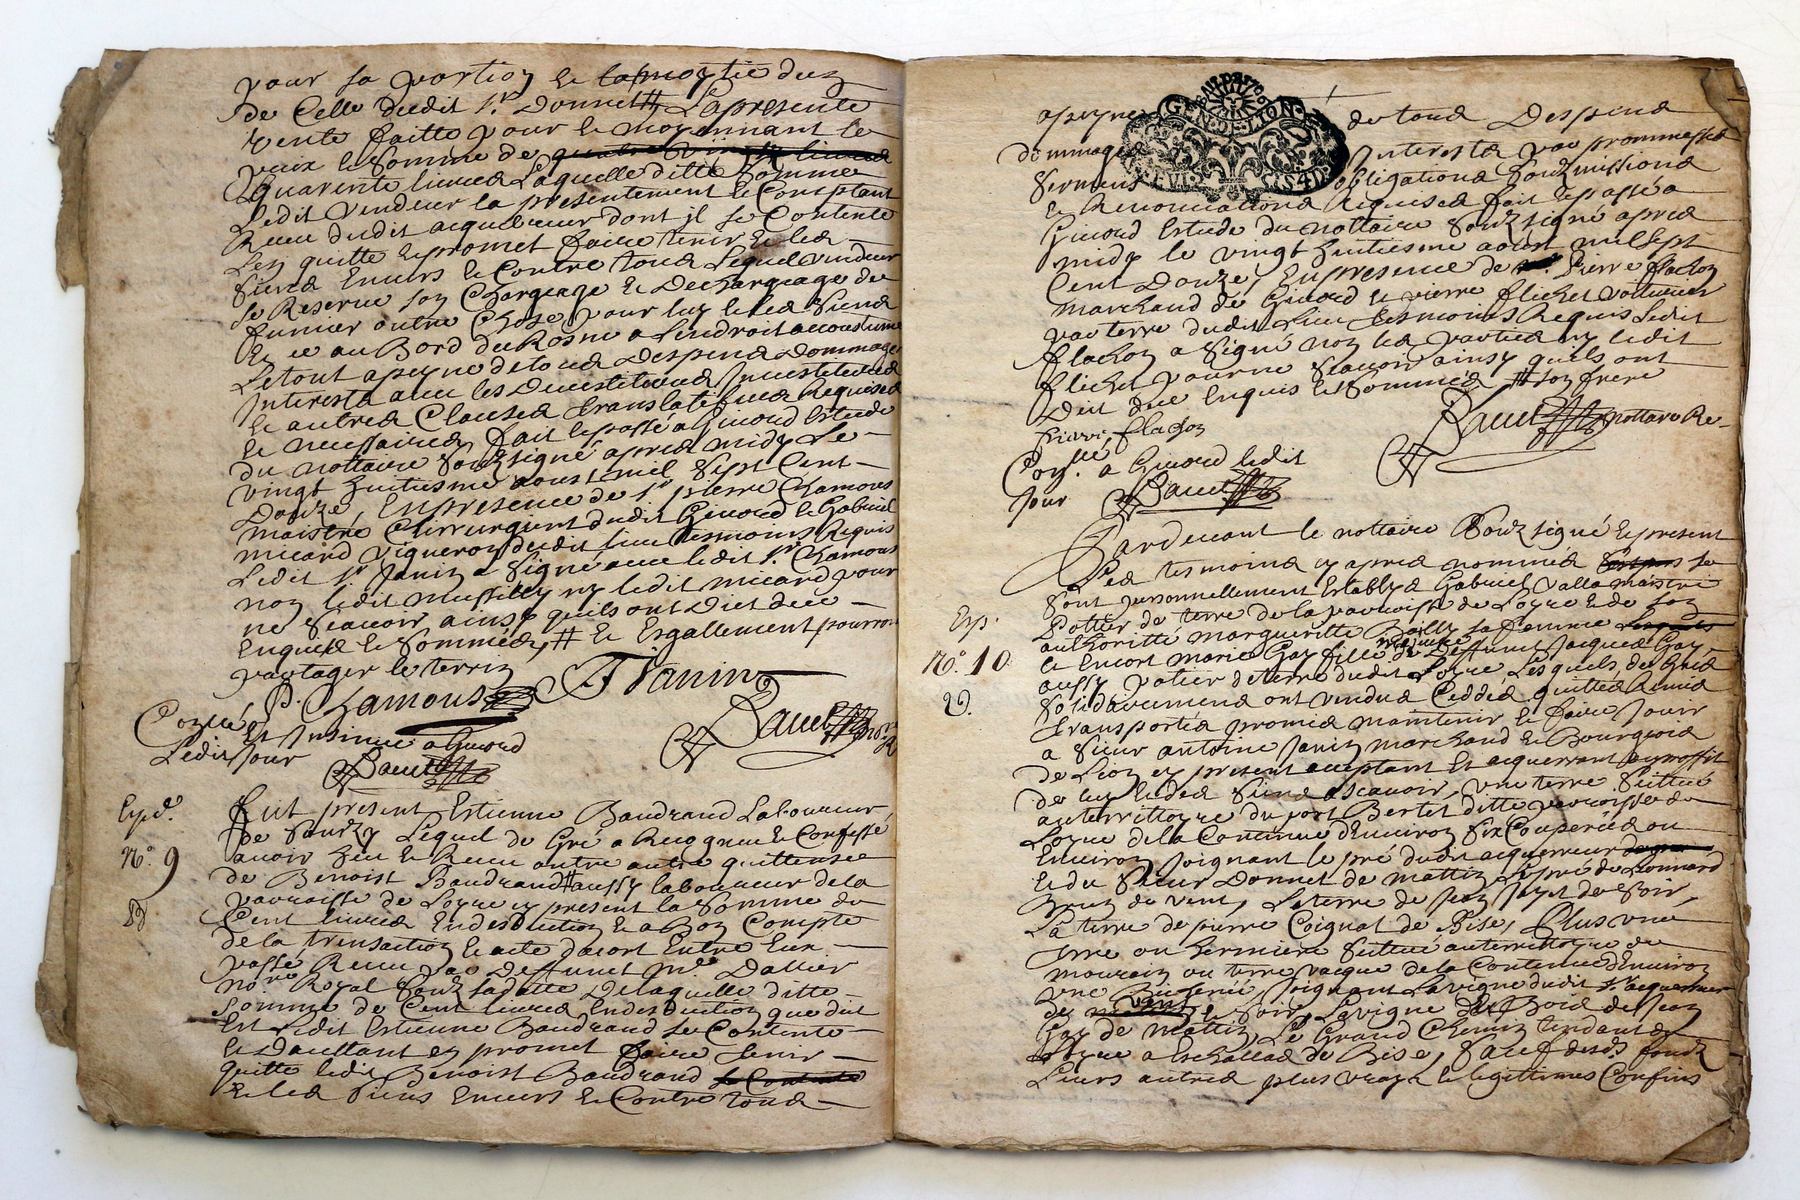 pour sa portion et la moytié du
de Celle dudit Sr. Donnet # La presente
vente faitte pour et moyennant le
prix et Somme de
quarente livres Laquelle ditte Somme
Ledit Vendeur la presentement et Comptant
Receu dudit acquereur dont jl se Contente
Len quitte et promet faire tenir et les
Siens Envers et Contre tous Lequel vendeur
se Reserve son Chargeage et Dechargeage de
fumier autre Chose pour luy et les Siens
au Bord du Rosne a Lendroit accoustumé
Le tout a peyne de tous despens Dommages
Interests avec les Devestitures Jnvestitures
et autres Clauses translatifves Requises
et necessaires fait et passé a Givord Estude
du nottaire Soubzsigné apres midy Le
vingt huitiesme aoust mil Sept Cent
Douze, En presence de Sr. pierre Chamous
maistre Chirurgient dudit Givord et Gabriel
micard vigneron dudit lieu tesmoins Requis
Ledit Sr. Janin a Signé avec ledit Sr. Chamous
non ledit ny ledit micard pour
ne scavoir ainsy quils ont Diet de ce
Enquis et Sommés # et Esgallement pourront
partager le terrin
P. Chamous A Janin
Controllé et Jnsinué a Givord
Ledit jour
Exped.
N.° 9
Fut present Estienne Baudrand Laboureur
de Lequel de Gré a Recognu et Confessé
avoir heu et Receu outre autre quittensse
de Benoist Baudrand # aussy laboureur de la
parroisse de Loyre cy present la Somme de
Cent livres En desduction et a Bon Compte
de la transaction et acte dacort Entre Eux
passé Receu par Deffunct Me. Dallier
nore. Royal Soubz sa datte De laquelle ditte
Somme de Cent livres En desduction que dit
Est Ledit Estienne Baudrand se Contente
et promet faire tenir
quitte ledit Benoist Baudrand
et les Siens Envers et Contre tous
a peyne de tous Despens
GEN. DE. LION
dommages Interests par prommesses
Serment obligations Soubzmissions
et Renonciations Requises fait et passé a
Givord Estude du nottaire Soubzsigné apres
midy le vingt huitiesme aoust mil Sept
Cent Douze, En presence de Pierre flachon
marchand de Givord et pierre flichet voitturier
par terre dudit Lieu tesmoins Requis Ledit
flachon a Signé non les parties ny ledit
flichet pour ne scavoir ainsy quils ont
Dit de ce Enquis et Sommés # son frere
Pierre flachon
nottaire Re.
Conllé. a Givord ledit
jour
Pardevant le nottaire Soubzsigné et present
Les tesmoins cy apres nommés se
sont personnellement Establys Gabriel Valla maistre
Exp.
Pottier de terre de la parroisse de Loyre et de son
N.° 10
authoritté margueritte Bailly sa femme
et Encort Marie Gay fille majeure de deffunt Jacques Gay,
aussy potier de terre dudit Loyre Lesquels de Gré et
Solidairement ont vendus Ceddés quittés Remis
transportés promis maintenir et faire Jouir
a Sieur antoine Janin marchand et Bourgeois
de Lion cy present acceptant et acquerrant au proffit
de luy et des Siens ascavoir, une terre Scittué
au territtoyre du port Bertet ditte parroisse de
Loyre de la Contenue d'Environ Six Couperées ou
Environ Joignant le pré dudit acquerreur
et du Sieur Donnet de mattin Le pré de Leonnard
Brun de vent, La terre de Jean de Soir,
La terre de pierre Coignat de Bise, Plus une
terre ou hermiere Scittué au territtoire de
ou terre vacque de la Contenue d'Environ
une Joignant La vigne dudit Sr. acquerreur
de Soir, La vigne et Bois de Jean
Gay de mattin, Le Grand Chemin tendant de
Loyre a Eschallas de Bise, Sauf desds. fonds
Leurs autres plus vrays et legittimes Confins